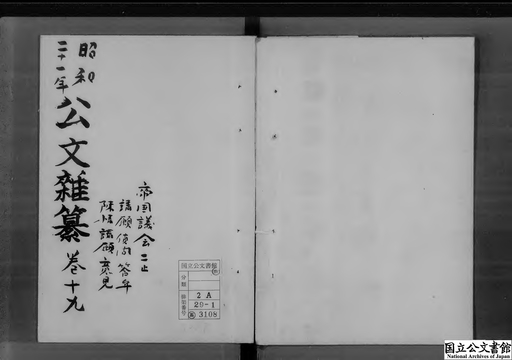 昭和
二十一年
公文雑纂 巻十九
帝国議会二止
請願
陳情請願意見
国立公文書館
分類
排架番号
2A
29-1
3108
国立公文書館
National Archives of Japan